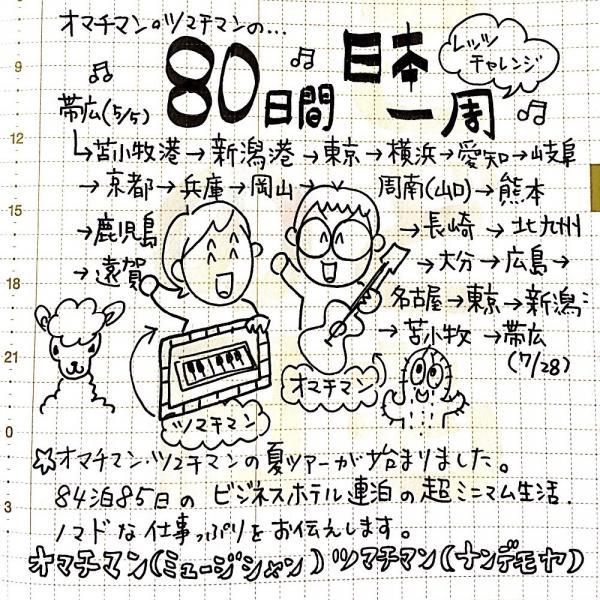 オマチマン。ツマチマンの...
80日間 日本一周
レッツ
チャレンジ
9
12
15
18
21
0
3
帯広(5/5)
↳苫小牧港→新潟港→東京→横浜→愛知→岐阜
→京都→兵庫→岡山→ 周南(山口)→熊本
→鹿児島 →長崎→北九州
→遠賀 →大分→広島→
名古屋→東京→新潟
→苫小牧→帯広
(7/28)
オマチマン
ツマチマン
☆オマチマン・ツマチマンの夏ツアーが始まりました。
84泊85日の ビジネスホテル連泊の超ミニマム生活.
ノマドな仕事っぷりをお伝えします。
オマチマン(ミュージシャン) ツマチマン(ナンデモヤ)